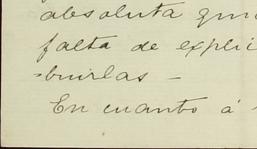 absoluta
falta de expli
-buirlas -
En cuanto á